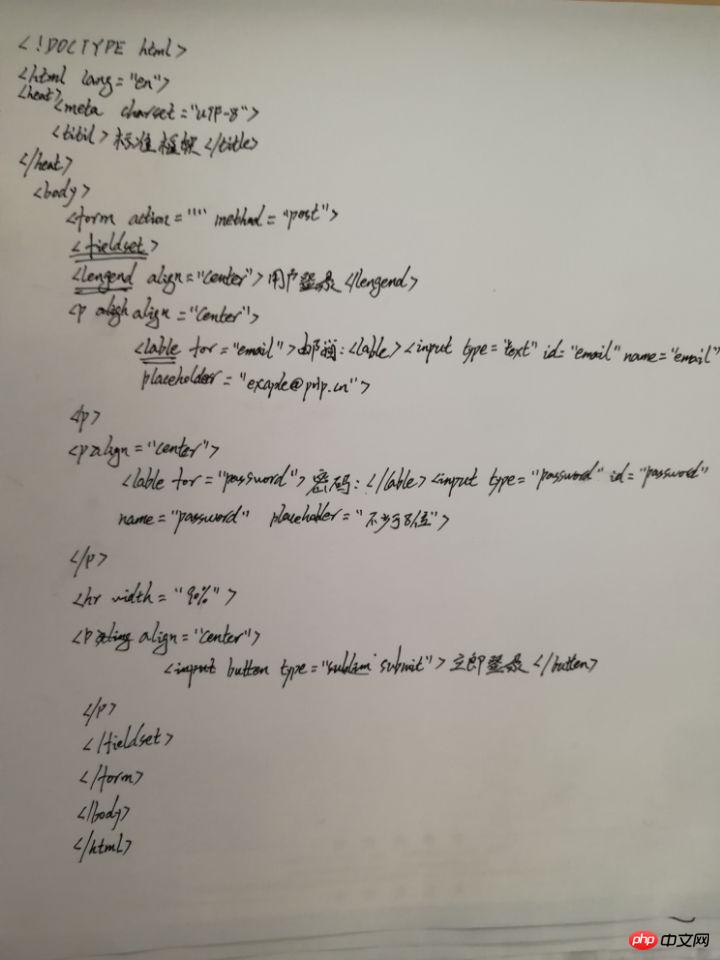 <!DOCTYPE html>
<html lang="en">
<heat>
<meta charset="UTF-8">
<titil>标准框架</title>
</heat>
<body>
<form action="" method="post">
<fieldset>
<lengend align="center">用户登录</lengend>
<p align="center">
<lable for="email">邮箱:<lable><input type="text" id="email" name="email"
placeholder="exaple@php.cn">
<p>
<p align="center">
<lable for="password">密码:</lable><input type="password" id="password"
name="password" placeholder="不少于8位">
</p>
<hr width="90%">
<p align="center">
<button type="submit">立即登录</button>
</p>
</fieldset>
</form>
</body>
</html>
php 中文网